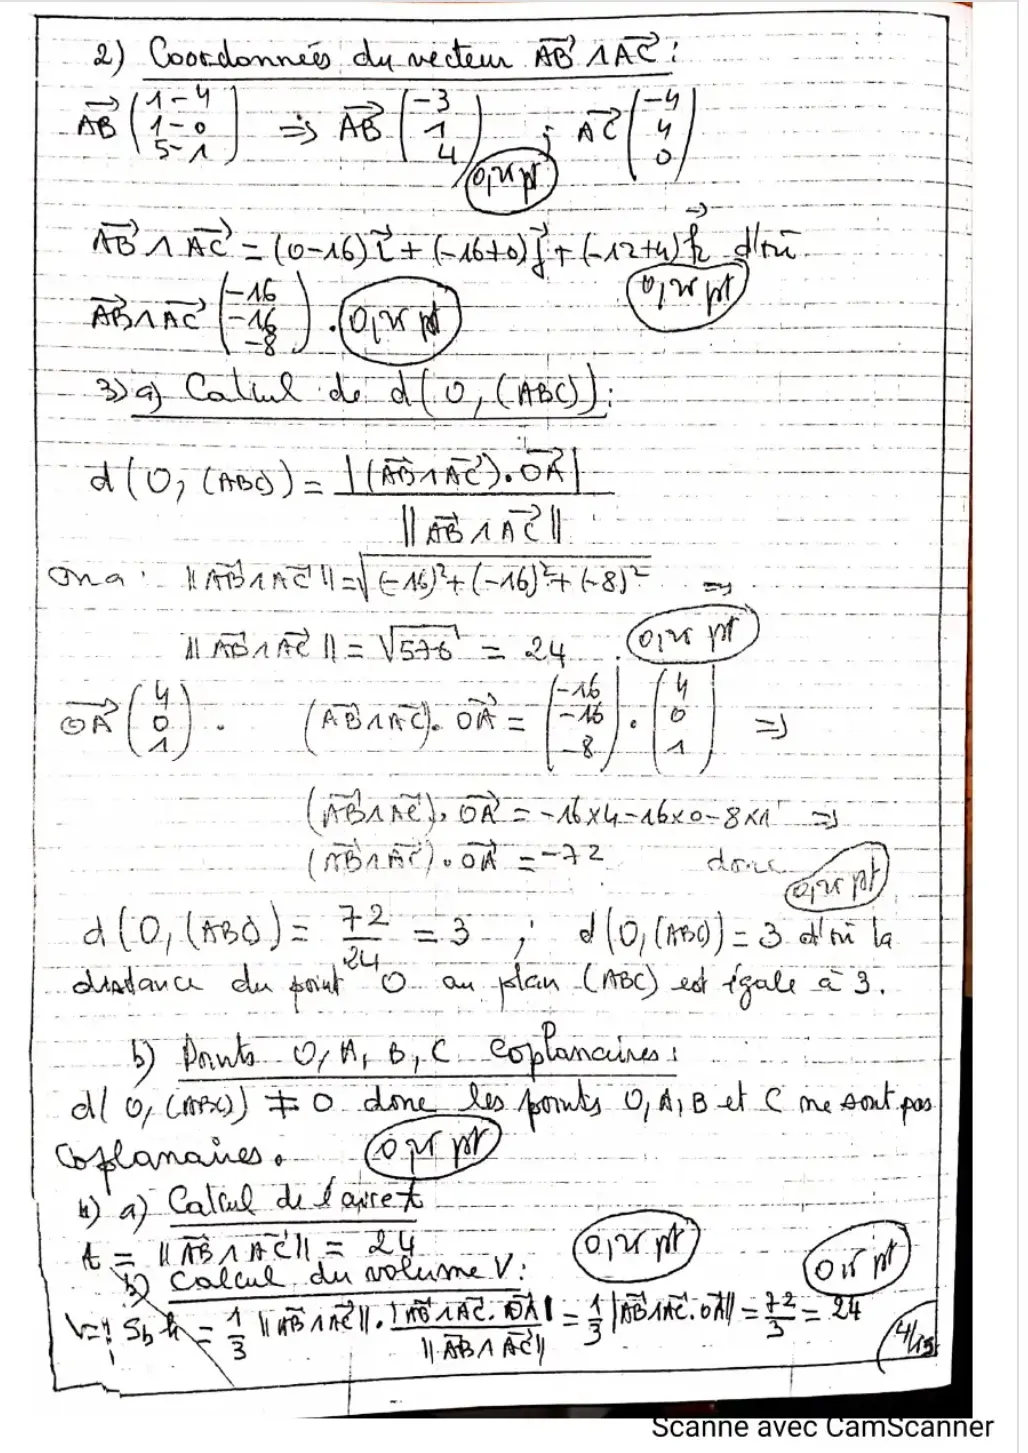 2) Coordonnées du vecteur AB ∧ AC :
AB (1-4 1-0 5-1) => AB (-3 1 4) ; AC (-4 4 0)
0,25 pt
AB ∧ AC = (0-16) i + (-16+0) j + (-12+4) k d'où
0,25 pt
AB ∧ AC (-16 -16 -8) . 0,25 pt
3) a) Calcul de d(O, (ABC)) :
d(O, (ABC)) = |(AB ∧ AC) . OA| / ||AB ∧ AC||
On a : ||AB ∧ AC|| = √((-16)² + (-16)² + (-8)²) =>
||AB ∧ AC|| = √576 = 24 . 0,25 pt
OA (4 0 1) . (AB ∧ AC) . OA = (-16 -16 -8) . (4 0 1) =>
(AB ∧ AC) . OA = -16×4-16×0-8×1 =>
(AB ∧ AC) . OA = -72 donc
0,25 pt
d(O, (ABC)) = 72/24 = 3 ; d(O, (ABC)) = 3 d'où la
distance du point O au plan (ABC) est égale à 3.
b) Points O, A, B, C coplanaires :
d(O, (ABC)) ≠ 0 donc les points O, A, B et C ne sont pas
coplanaires. 0,25 pt
4) a) Calcul de l'aire A
A = ||AB ∧ AC|| = 24 0,25 pt
b) Calcul du volume V : 0,5 pt
Sb h = 1/3 ||AB ∧ AC|| . |AB ∧ AC . OA| / ||AB ∧ AC|| = 1/3 |AB ∧ AC . OA| = 72/3 = 24
4/15
Scanne avec CamScanner